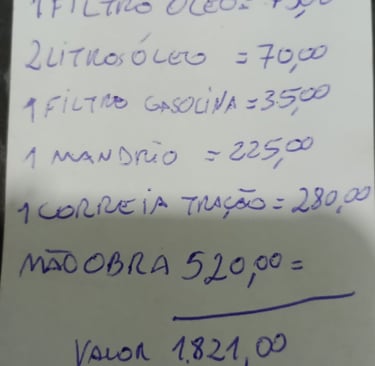 1 FILTRO ÓLEO =
2 LITROS ÓLEO = 70,00
1 FILTRO GASOLINA = 35,00
1 MANDRIO = 225,00
1 CORREIA TRAÇÃO = 280,00
MÃO OBRA 520,00 =
VALOR 1.821,00